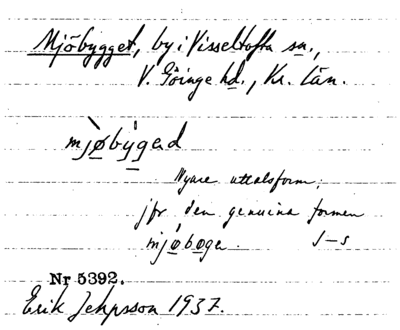 Mjöbygget, by i Visseltofta sn.,
V. Göinge hd., Kr. län.
mjø̀býgəd
Nyare uttalsform;
jfr den genuina formen
mjø̀bøgə. J-s
Nr 5392.
Erik Jeppsson 1937.